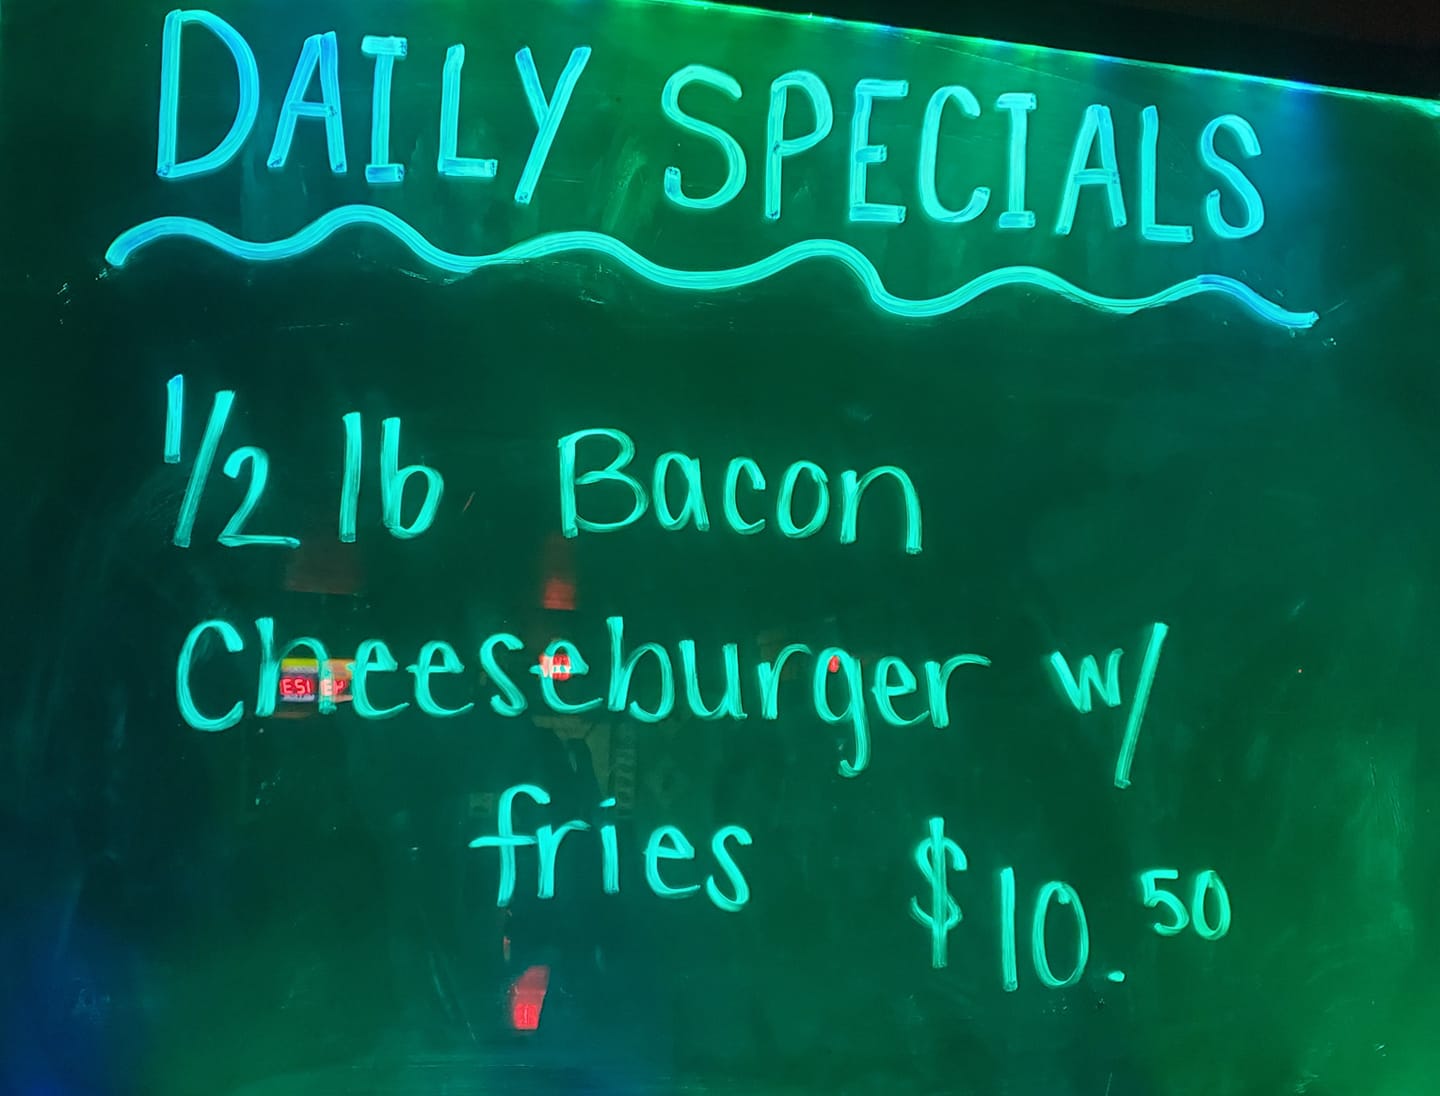 DAILY SPECIALS
1/2 lb Bacon
Cheeseburger w/
fries $10.50